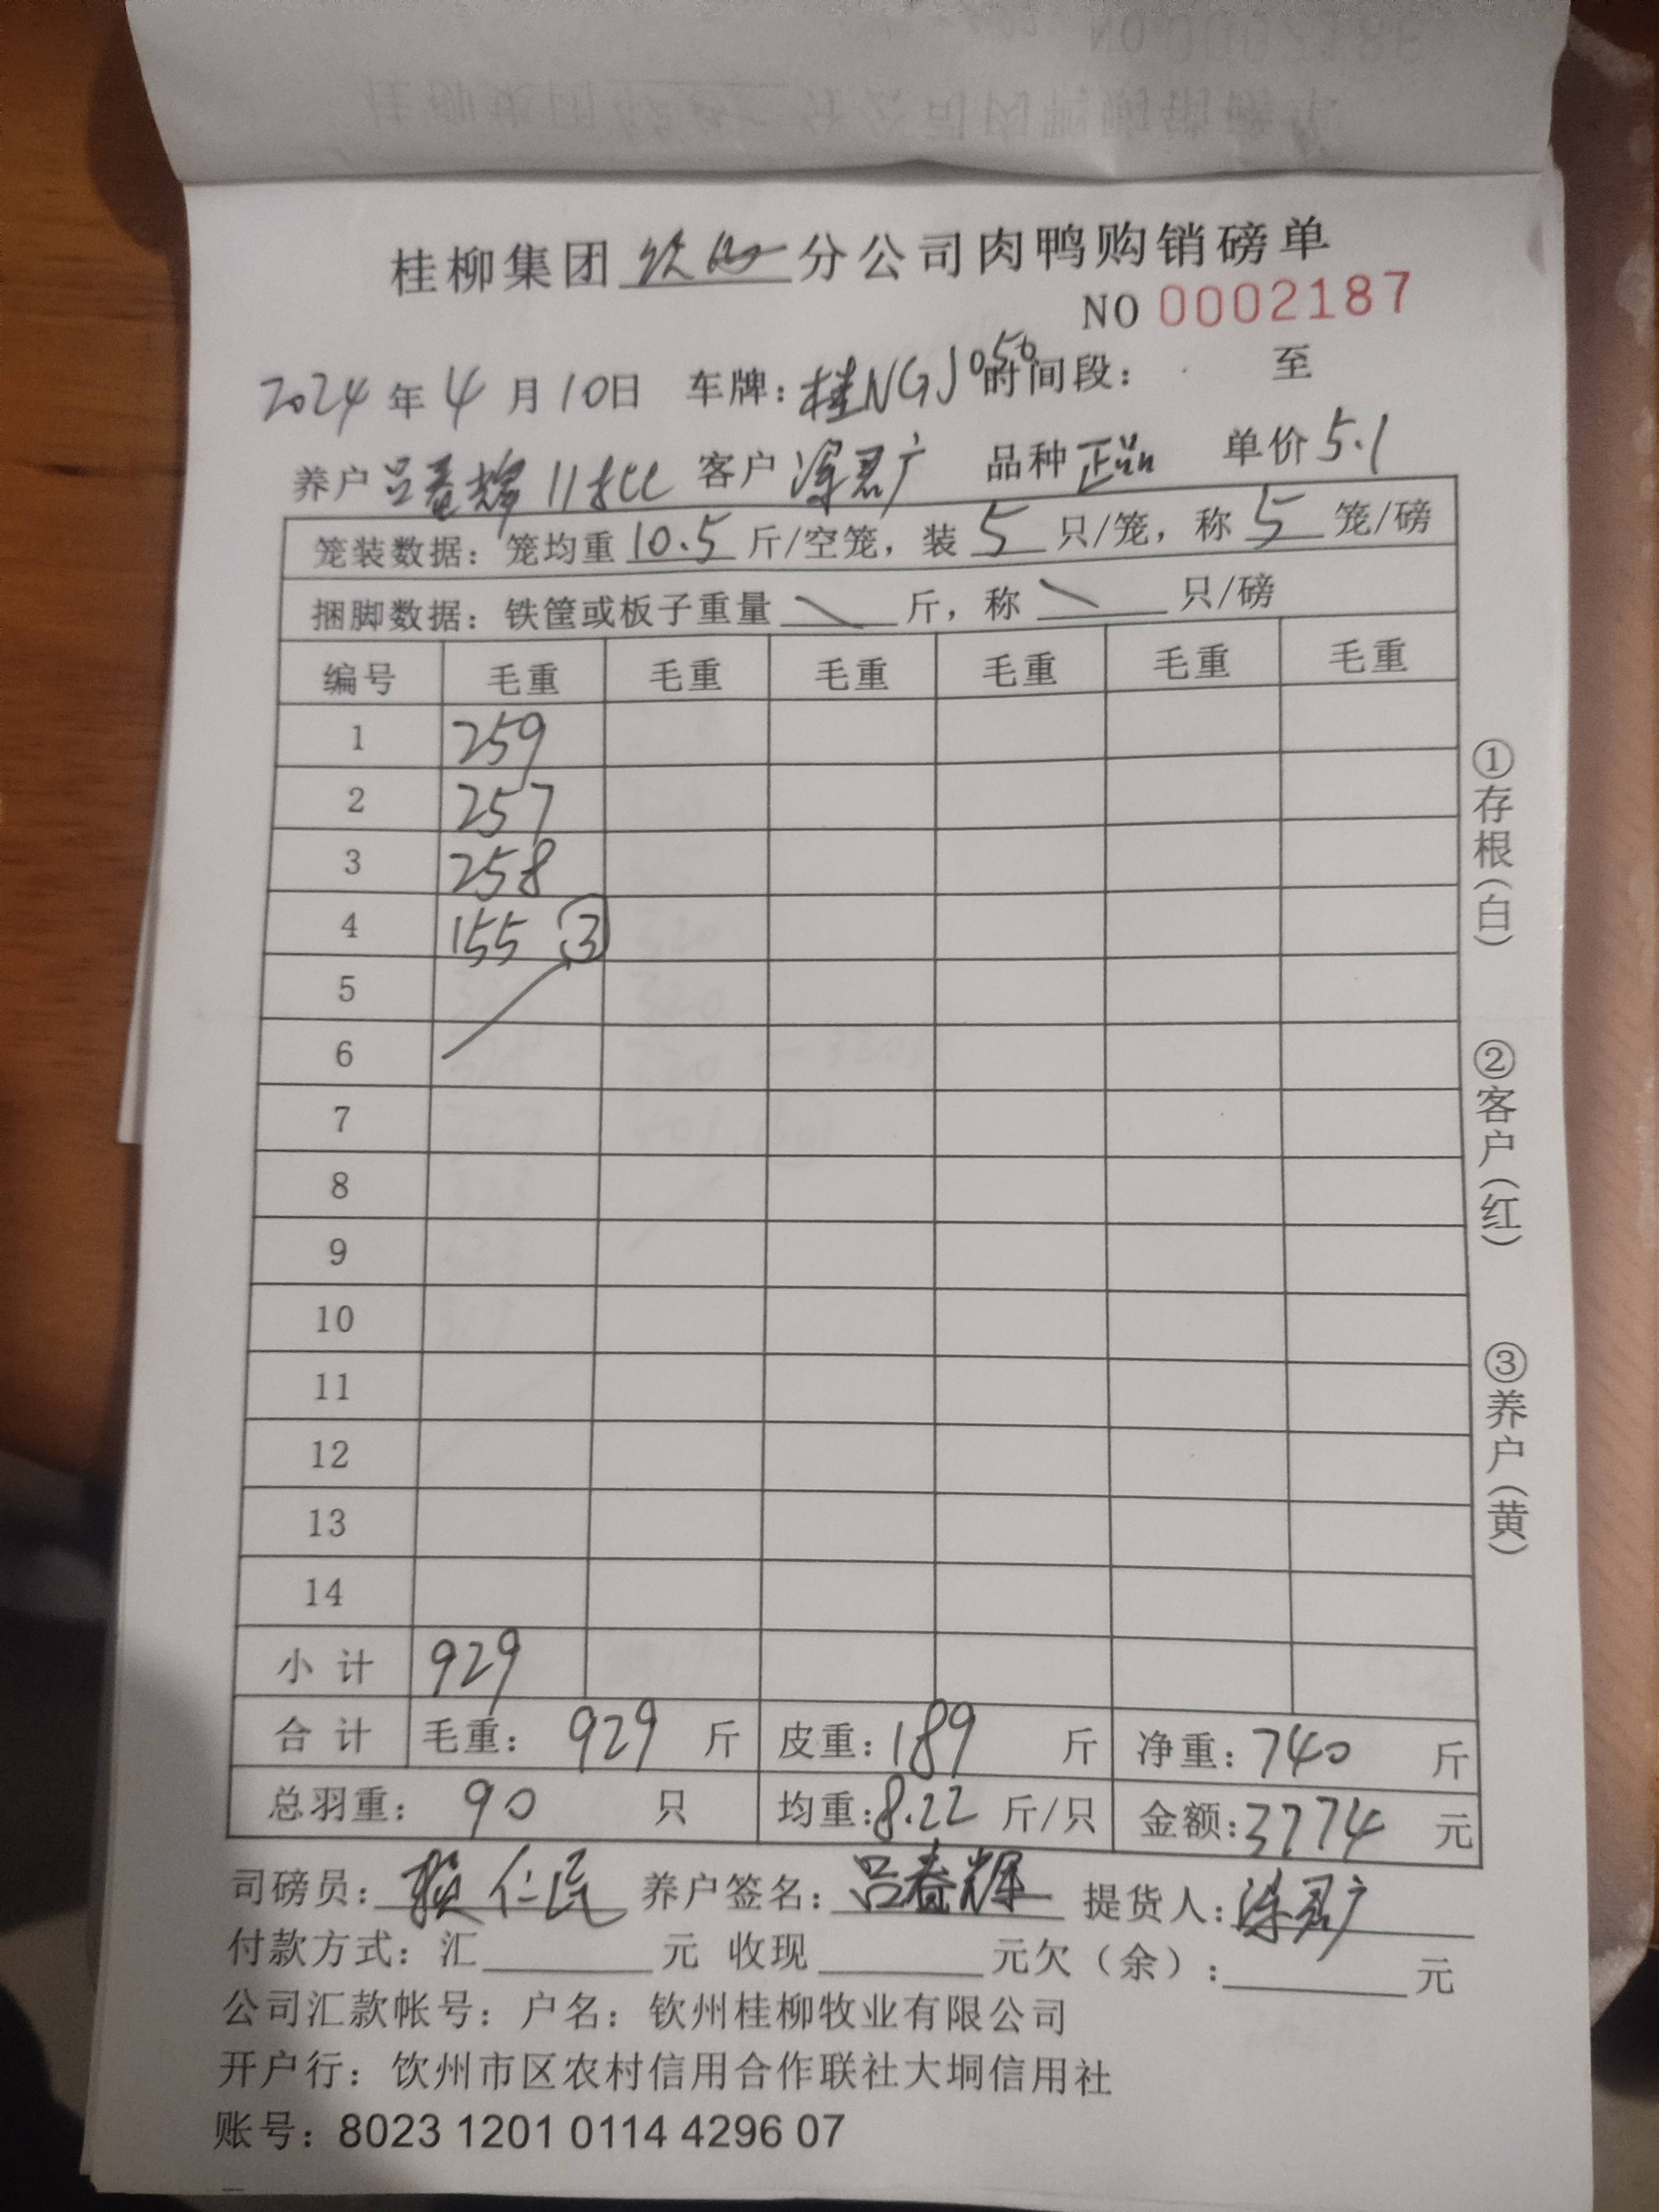 桂柳集团钦州分公司肉鸭购销磅单
NO 0002187
2024年4月10日 车牌:桂NGJ056 时间段: 至
养户 吕春辉 11 客户 广 品种 正品 单价 5.1
笼装数据:笼均重 10.5 斤/空笼,装 5 只/笼,称 5 笼/磅
捆脚数据:铁筐或板子重量 \ 斤,称 \ 只/磅
编号 毛重 毛重 毛重 毛重 毛重 毛重
1 259
2 257
3 258
4 155 ③
5
6
7
8
9
10
11
12
13
14
小计 929
合计 毛重: 929 斤 皮重:189 斤 净重:740 斤
总羽重: 90 只 均重:8.22 斤/只 金额:3774 元
司磅员: 仁 养户签名:吕春辉 提货人: 广
付款方式:汇 元 收现 元欠(余): 元
公司汇款帐号:户名:钦州桂柳牧业有限公司
开户行:钦州市区农村信用合作联社大垌信用社
账号:8023 1201 0114 4296 07
①存根(白)
②客户(红)
③养户(黄)